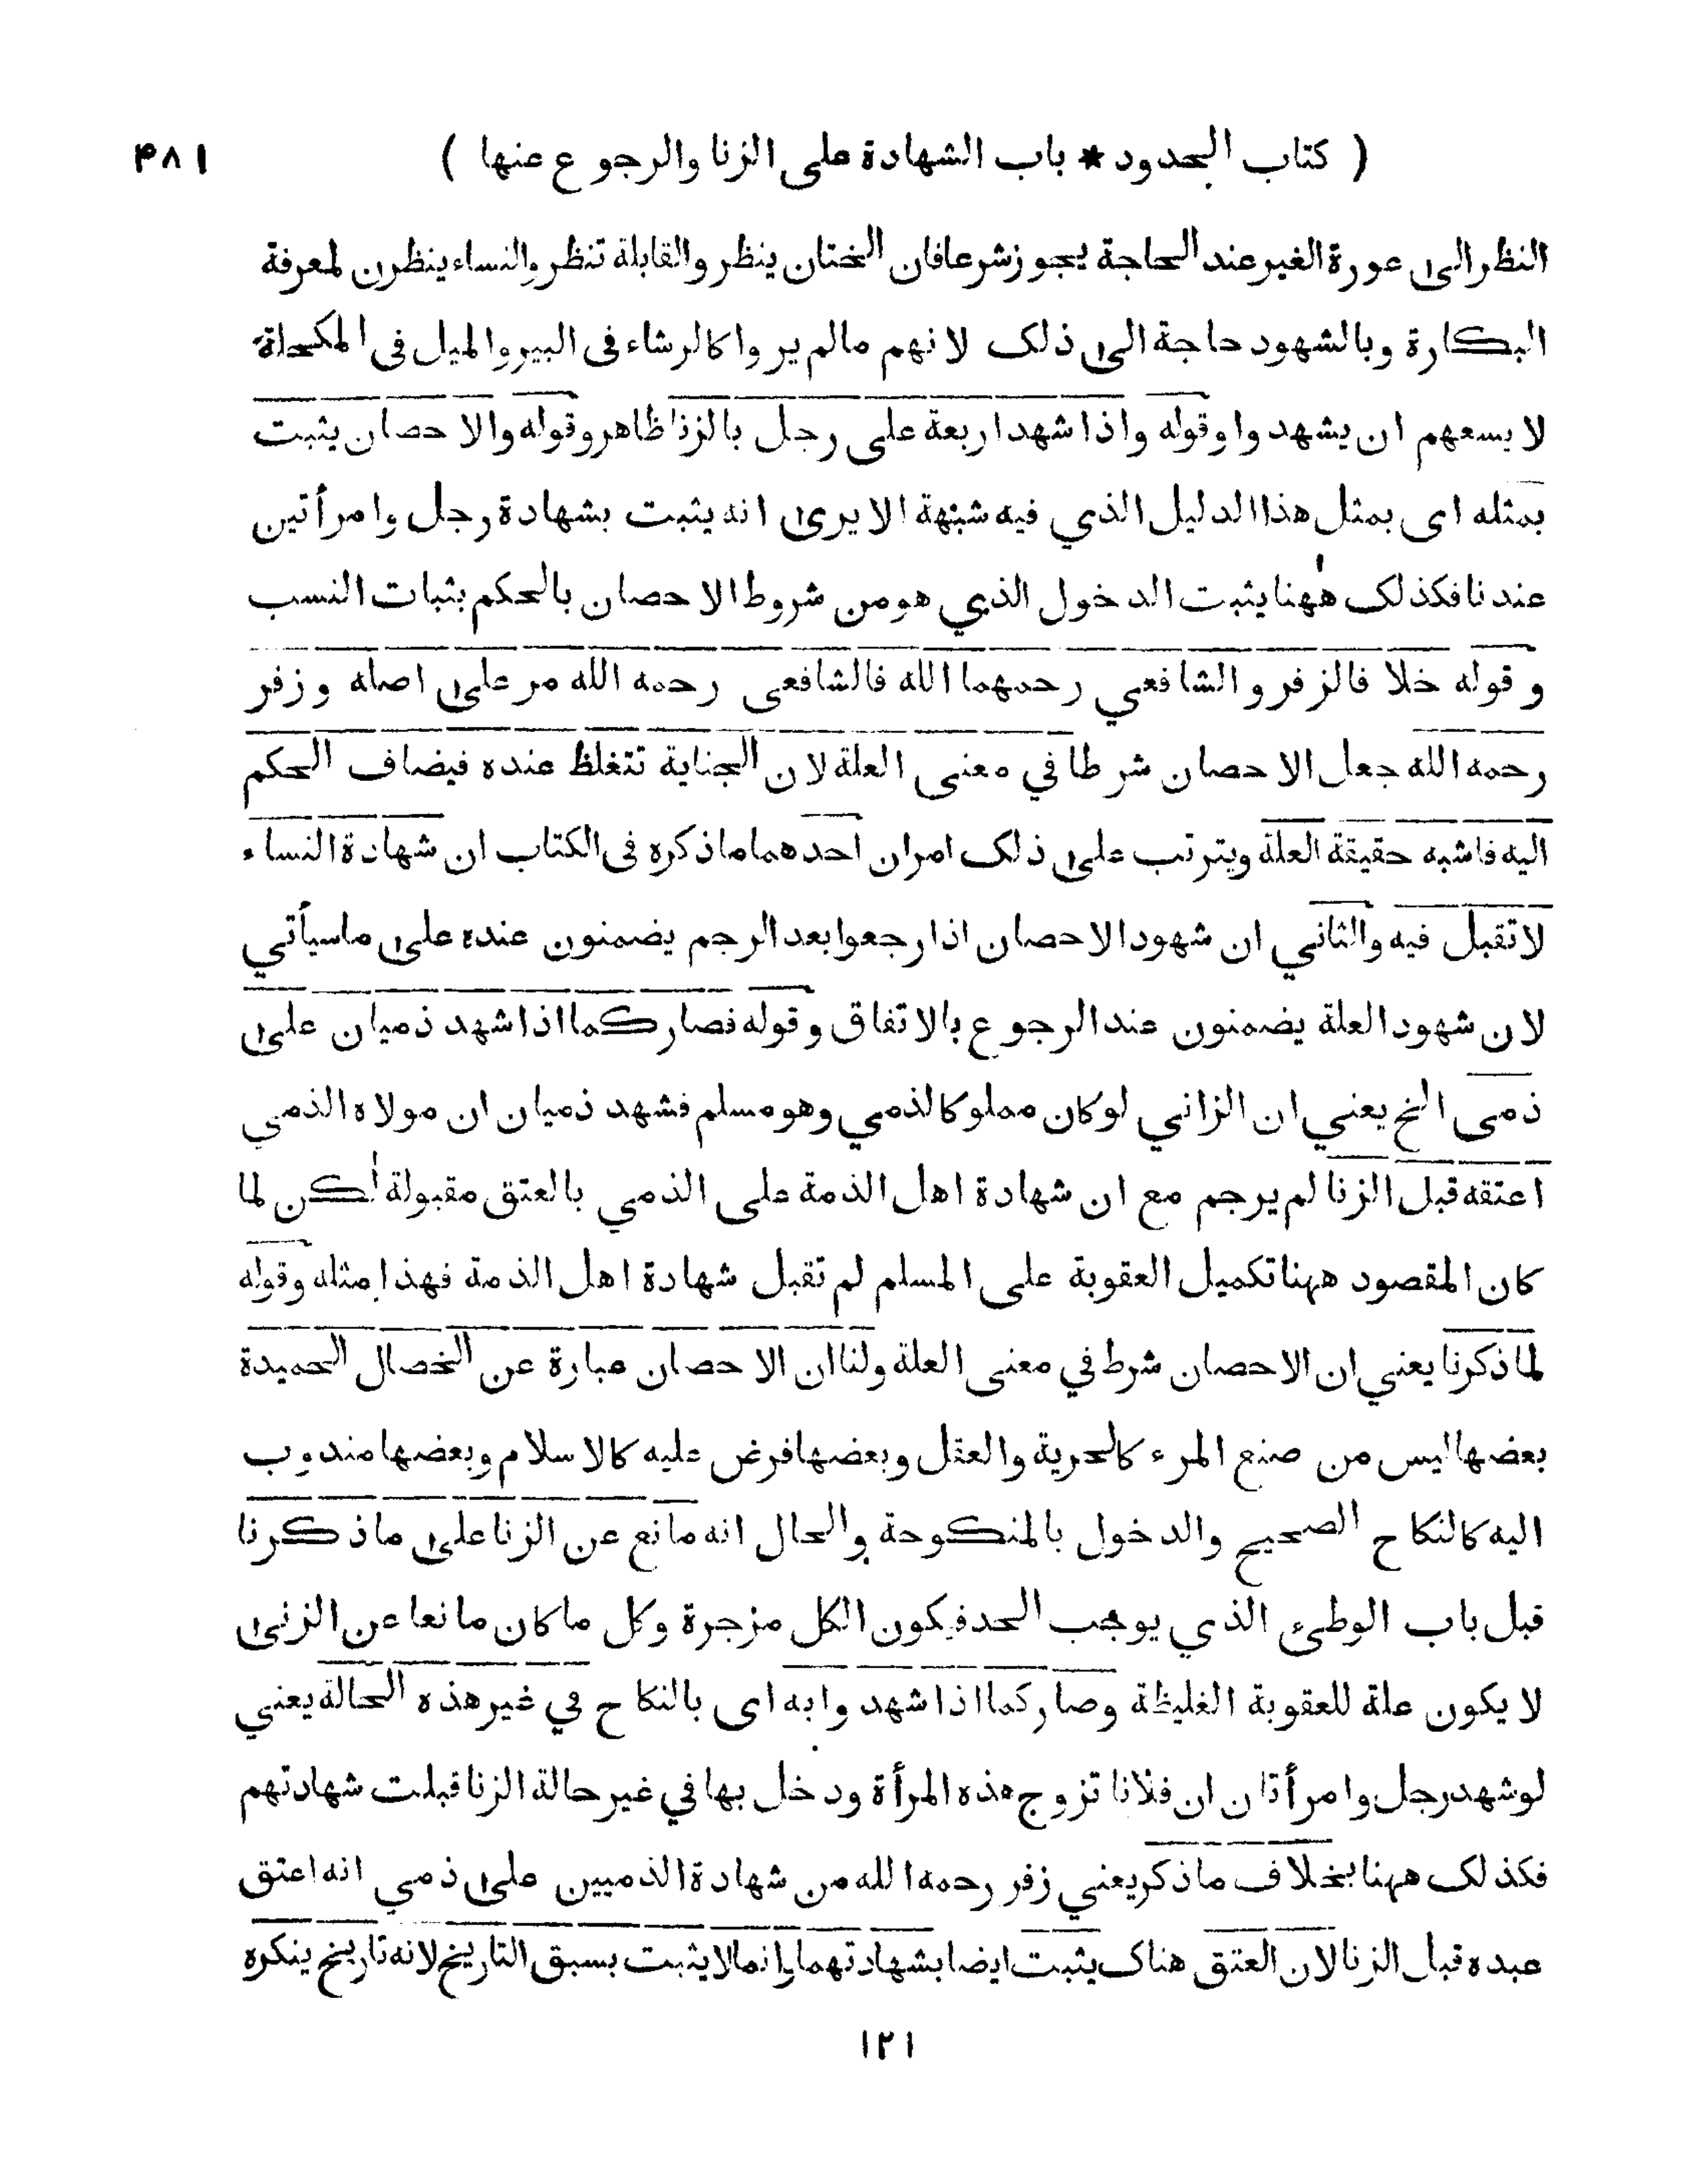 ( كتاب الحدود * باب الشهادة على الزنا والرجوع عنها ) ۴۸۱
النظر الى عورة الغير عند الحاجة يجوز شرعا فان الختان ينظر والقابلة تنظر والنساء ينظرن لمعرفة
البكارة وبالشهود حاجة الى ذلك لانهم مالم يروا كالرشاء فى البير والميل فى المكحلة
لا يسعهم ان يشهدوا وقوله واذا شهد اربعة على رجل بالزنا ظاهر وقوله والاحصان يثبت
بمثله اى بمثل هذا الدليل الذي فيه شبهة الا يرى انه يثبت بشهادة رجل وامرأتين
عندنا فكذلك ههنا يثبت الدخول الذي هو من شروط الاحصان بالحكم بثبات النسب
وقوله خلافا لزفر والشافعي رحمهما الله فالشافعى رحمه الله مر على اصله وزفر
رحمه الله جعل الاحصان شرطا في معنى العلة لان الجناية تتغلظ عنده فيضاف الحكم
اليه فاشبه حقيقة العلة ويترتب على ذلك امران احدهما ماذكره فى الكتاب ان شهادة النساء
لا تقبل فيه والثاني ان شهود الاحصان اذا رجعوا بعد الرجم يضمنون عنده على ماسيأتي
لان شهود العلة يضمنون عند الرجوع بالاتفاق وقوله فصار كما اذا شهد ذميان على
ذمى الخ يعني ان الزاني لو كان مملوكا لذمي وهو مسلم فشهد ذميان ان مولاه الذمي
اعتقه قبل الزنا لم يرجم مع ان شهادة اهل الذمة على الذمي بالعتق مقبولة لكن لما
كان المقصود ههنا تكميل العقوبة على المسلم لم تقبل شهادة اهل الذمة فهذا مثله وقوله
لما ذكرنا يعني ان الاحصان شرط في معنى العلة ولنا ان الاحصان عبارة عن الخصال الحميدة
بعضها ليس من صنع المرء كالحرية والعقل وبعضها فرض عليه كالاسلام وبعضها مندوب
اليه كالنكاح الصحيح والدخول بالمنكوحة والحال انه مانع عن الزنا على ماذكرنا
قبل باب الوطىء الذي يوجب الحد فيكون الكل مزجرة وكل ماكان مانعا عن الزنى
لا يكون علة للعقوبة الغليظة وصار كما اذا شهدوا به اى بالنكاح في غير هذه الحالة يعني
لو شهد رجل وامرأتان ان فلانا تزوج هذه المرأة ودخل بها في غير حالة الزنا قبلت شهادتهم
فكذلك ههنا بخلاف ماذكر يعني زفر رحمه الله من شهادة الذميين على ذمي انه اعتق
عبده قبل الزنا لان العتق هناك يثبت ايضا بشهادتهما وانما لا يثبت بسبق التاريخ لانه تاريخ ينكره
۱۲۱